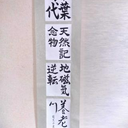 葉
代
天然記
念物
地磁気
逆転
養老
川